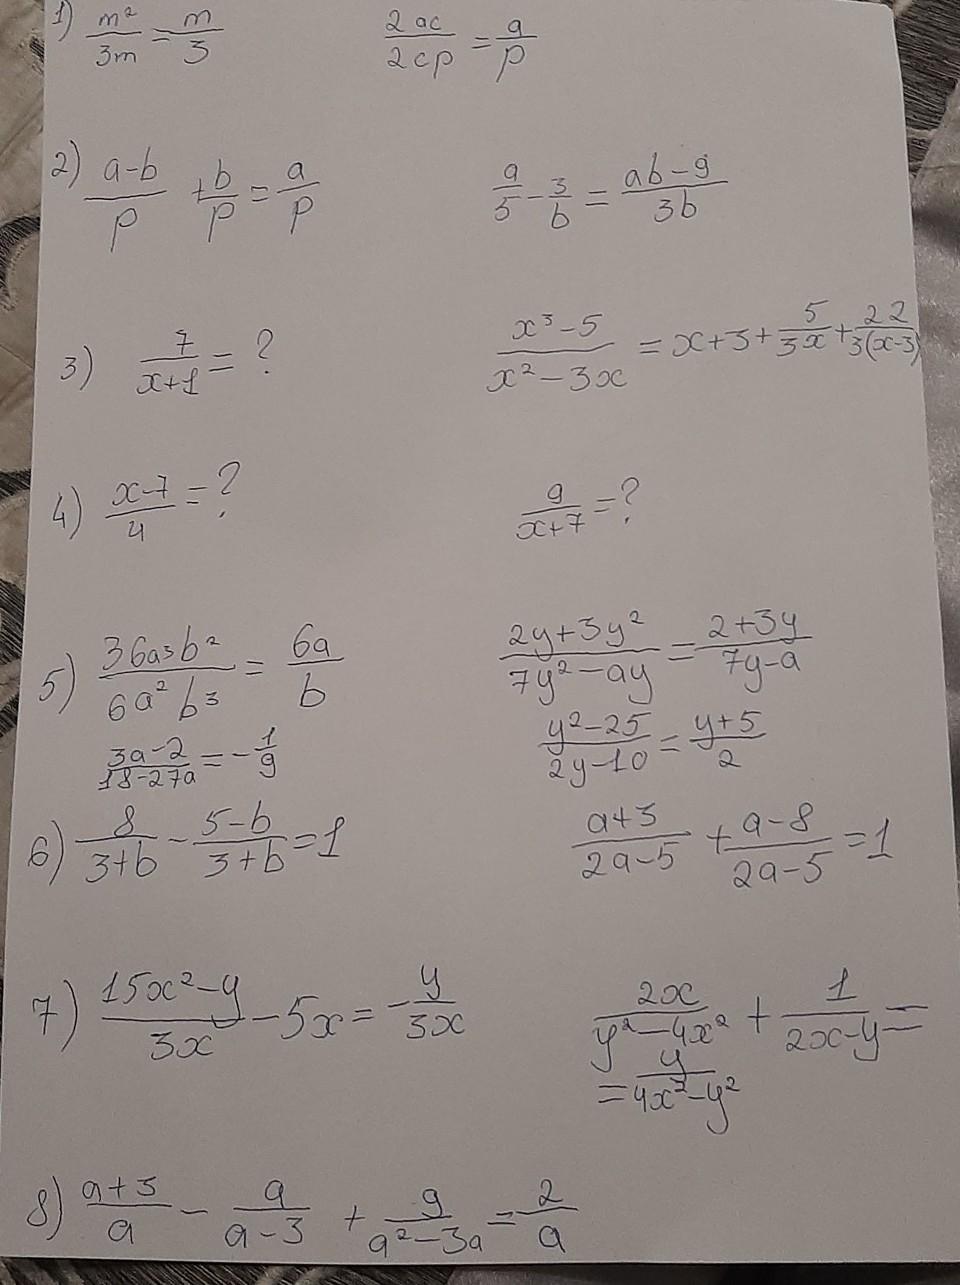 1) m²/3m = m/3    2ac/2cp = a/p
2) a-b/p + b/p = a/p    a/5 - 3/b = ab-9/3b
3) 7/x+1 = ?    x³-5/x²-3x = x+3+5/3x+22/3(x-3)
4) x-7/4 = ?    9/x+7 = ?
5) 36a³b²/6a²b³ = 6a/b    2y+3y²/7y²-ay = 2+3y/7y-a
3a-2/18-27a = -1/9    y²-25/2y-10 = y+5/2
6) 8/3+b - 5-b/3+b = 1    a+3/2a-5 + a-8/2a-5 = 1
7) 15x²-y/3x - 5x = -y/3x    2x/y²-4x² + 1/2x-y =
= y/4x²-y²
8) a+3/a - a/a-3 + 9/a²-3a = 2/a